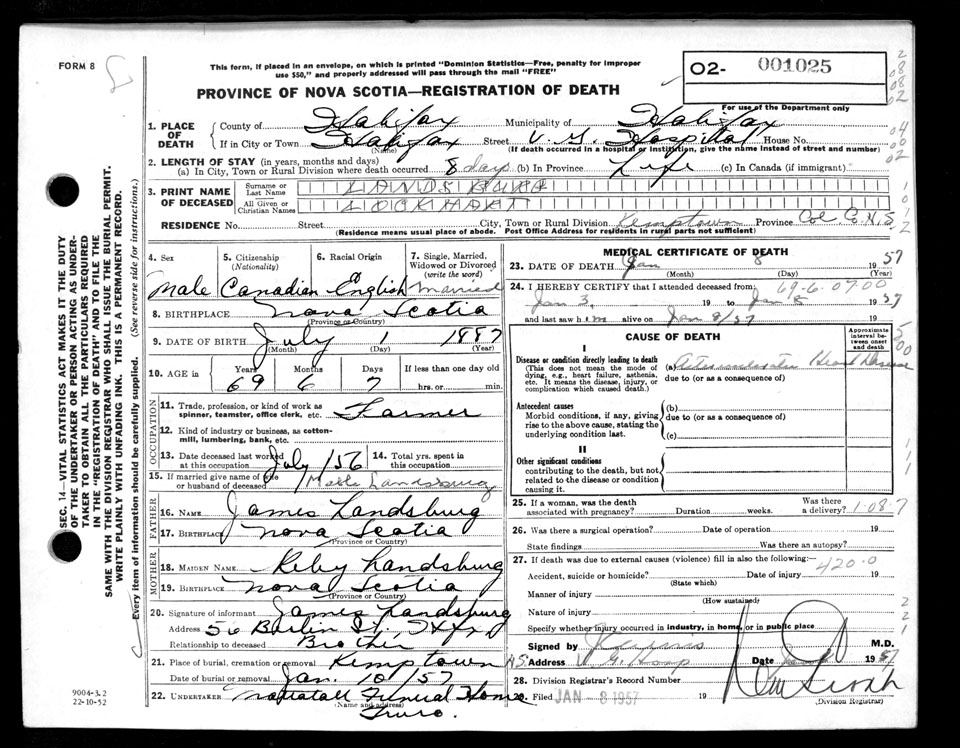 FORM 8
This form, if placed in an envelope, on which is printed "Dominion Statistics—Free, penalty for improper
use $50," and properly addressed will pass through the mail "FREE"
O2- 001025
For use of the Department only
PROVINCE OF NOVA SCOTIA—REGISTRATION OF DEATH
1. PLACE OF DEATH { County of Halifax Municipality of Halifax
If in City or Town Halifax Street V. G. Hospital House No.
(Name) (If death occurred in a hospital or institution, give the name instead of street and number)
2. LENGTH OF STAY (in years, months and days)
(a) In City, Town or Rural Division where death occurred 8 days (b) In Province Life (c) In Canada (if immigrant)
3. PRINT NAME OF DECEASED { Surname or Last Name LANDSBURG
All Given or Christian Names LOCKHART
RESIDENCE No. Street City, Town or Rural Division Kemptown Province Col Co. N.S.
(Residence means usual place of abode. Post Office Address for residents in rural parts not sufficient)
4. Sex 5. Citizenship (Nationality) 6. Racial Origin 7. Single, Married, Widowed or Divorced (write the word)
Male Canadian English Married
8. BIRTHPLACE Nova Scotia
(Province or Country)
9. DATE OF BIRTH July 1 1887
(Month) (Day) (Year)
10. AGE Years Months Days If less than one day old
69 6 7 hrs. or min.
OCCUPATION
11. Trade, profession, or kind of work as spinner, teamster, office clerk, etc. Farmer
12. Kind of industry or business, as cotton-mill, lumbering, bank, etc.
13. Date deceased last worked at this occupation July /56 14. Total yrs. spent in this occupation
15. If married give name of wife or husband of deceased Landsburg
FATHER
16. NAME James Landsburg
17. BIRTHPLACE Nova Scotia
(Province or Country)
MOTHER
18. MAIDEN NAME Landsburg
19. BIRTHPLACE Nova Scotia
(Province or Country)
20. Signature of informant James Landsburg
Address 56 St., Hfx
Relationship to deceased Brother
21. Place of burial, cremation or removal Kemptown N.S.
Date of burial or removal Jan. 10/57
22. UNDERTAKER Funeral Home
(Name and address)
Truro.
MEDICAL CERTIFICATE OF DEATH
23. DATE OF DEATH Jan 8 1957
(Month) (Day) (Year)
24. I HEREBY CERTIFY that I attended deceased from: 69-6-07-00
Jan 3 19 to Jan 8 1957
and last saw him alive on Jan 8/57 19
CAUSE OF DEATH
Approximate interval between onset and death
I
Disease or condition directly leading to death
(This does not mean the mode of dying, e.g., heart failure, asthenia, etc. It means the disease, injury, or complication which caused death.)
(a) Arteriosclerotic Heart Disease
due to (or as a consequence of)
Antecedent causes
Morbid conditions, if any, giving rise to the above cause, stating the underlying condition last.
(b)
due to (or as a consequence of)
(c)
II
Other significant conditions
contributing to the death, but not related to the disease or condition causing it.
25. If a woman, was the death associated with pregnancy? Duration weeks. Was there a delivery? 1-08-7
26. Was there a surgical operation? Date of operation 19
State findings Was there an autopsy?
27. If death was due to external causes (violence) fill in also the following: 420-0
Accident, suicide or homicide? Date of injury 19
(State which)
Manner of injury
(How sustained)
Nature of injury
Specify whether injury occurred in industry, in home, or in public place
Signed by M.D.
Address V. G. Hosp Date Jan 8 1957
28. Division Registrar's Record Number
Filed JAN 8 1957 19
(Division Registrar)
9004-3.2
22-10-52
SEC. 14—VITAL STATISTICS ACT MAKES IT THE DUTY
OF THE UNDERTAKER OR PERSON ACTING AS UNDER-
TAKER TO OBTAIN ALL THE PARTICULARS REQUIRED
IN THE "REGISTRATION OF DEATH" AND TO FILE THE
SAME WITH THE DIVISION REGISTRAR WHO SHALL ISSUE THE BURIAL PERMIT.
WRITE PLAINLY WITH UNFADING INK. THIS IS A PERMANENT RECORD.
Every item of information should be carefully supplied. (See reverse side for instructions.)